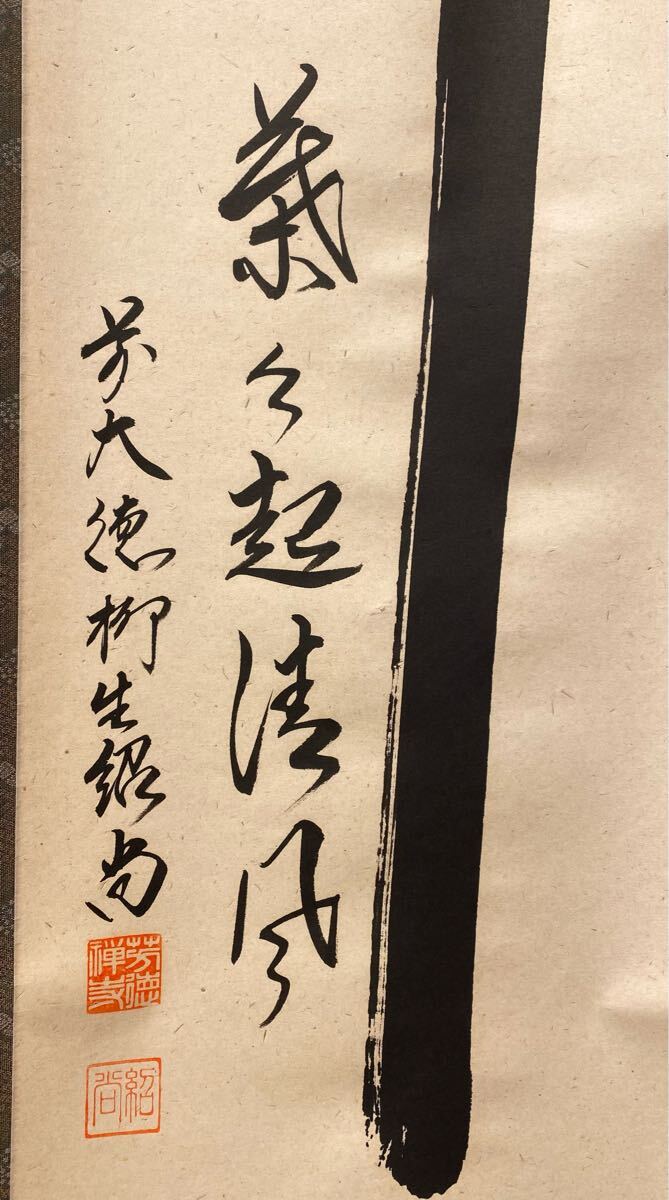 葉々起清風
前大徳柳生紹尚
芳徳禅寺
紹尚